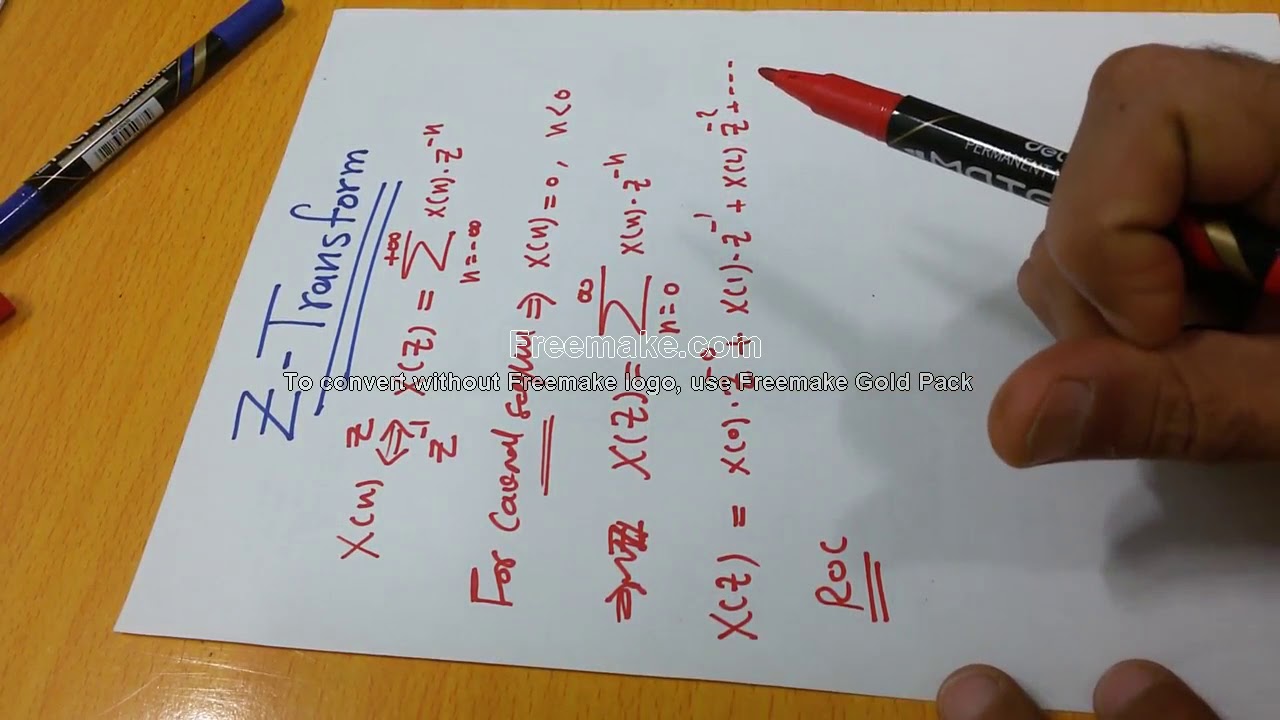 Z-Transform
X(n) Z ⇔ Z⁻¹ X(Z) = +∞ Σ n=-∞ x(n).z⁻ⁿ
For Causal ⇒ x(n)=0, n<0
⇒ X(Z) = ∞ Σ n=0 x(n).z⁻ⁿ
X(Z) = x(0).z⁻⁰ + x(1).z⁻¹ + x(2) z⁻² + ---
ROC
Freemake.com
To convert without Freemake logo, use Freemake Gold Pack
deli
PERMANENT